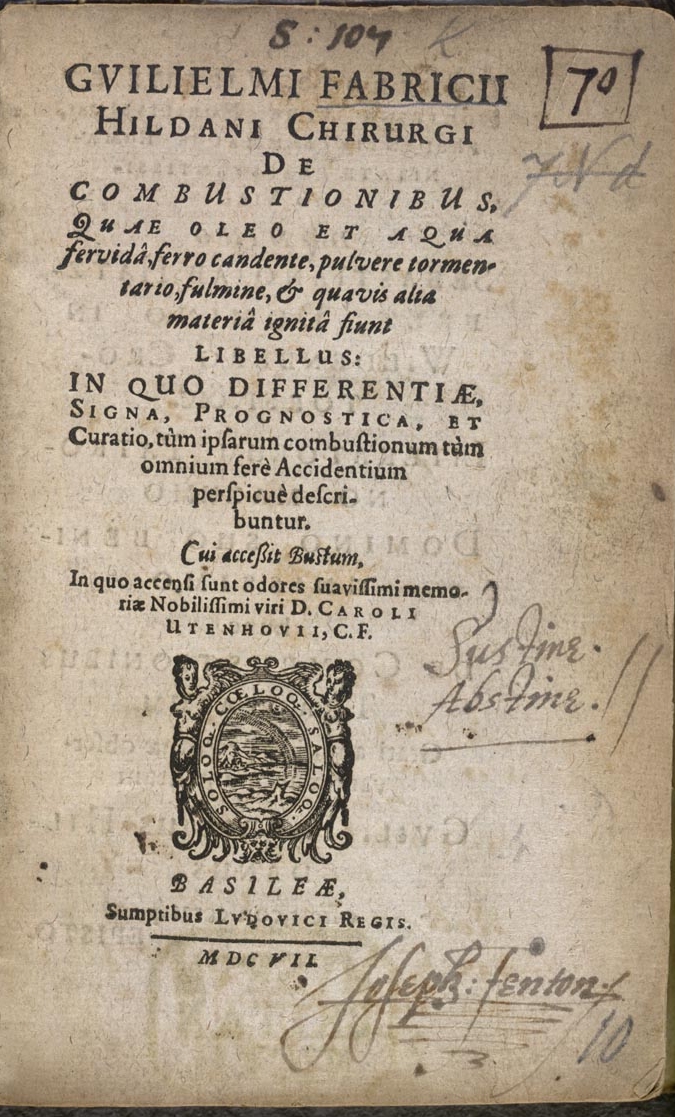 S : 107
GVILIELMI FABRICII
HILDANI CHIRURGI
DE
COMBUSTIONIBUS,
QUAE OLEO ET AQUA
fervidâ, ferro candente, pulvere tormen-
tario, fulmine, & quavis alia
materiâ ignitâ fiunt
LIBELLUS:
IN QUO DIFFERENTIÆ,
SIGNA, PROGNOSTICA, ET
Curatio, tùm ipſarum combuſtionum tùm
omnium ferè Accidentium
perſpicuè deſcri-
buntur.
Cui acceßit Buſtum,
In quo accenſi ſunt odores ſuaviſſimi memo-
riæ Nobiliſſimi viri D. CAROLI
UTENHOVII, C.F.
SOLOQ. CŒLOQ. SALOQ.
BASILEÆ,
Sumptibus LVDOVICI REGIS.
MDCVII.
70
Sustine.
Abstine.
Joseph: fenton
10